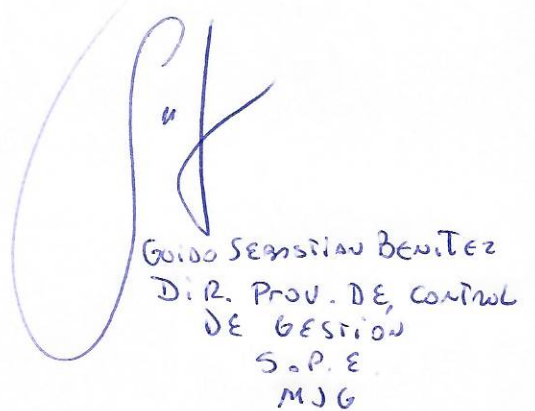 Guido Sebastian Benitez
Dir. Prov. DE CONTROL
DE GESTIÓN
S.P.E
MJG